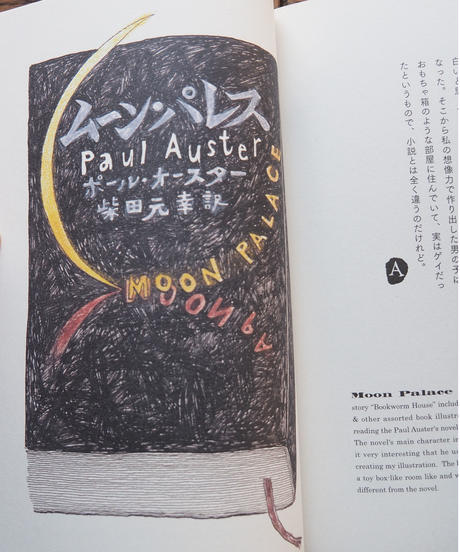 ムーン・パレス
Paul Auster
ポール・オースター
柴田元幸訳
MOON PALACE
なった。そこから私の想像力で作り出した男の子は
おもちゃ箱のような部屋に住んでいて、実はゲイだっ
たというもので、小説とは全く違うのだけれど。
A
Moon Palace
story "Bookworm House" includ
& other assorted book illustr
reading the Paul Auster's novel
The novel's main character in
it very interesting that he us
creating my illustration. The
a toy box-like room like and
different from the novel.